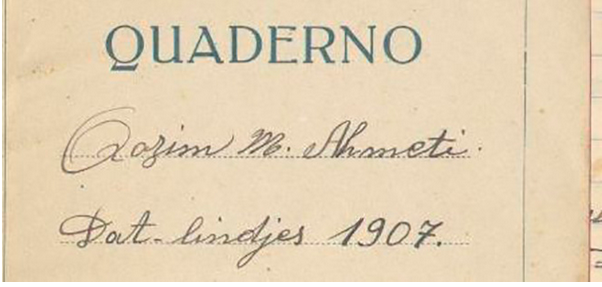 QUADERNO
Qazim M. Ahmeti.
Dat-lindjes 1907.